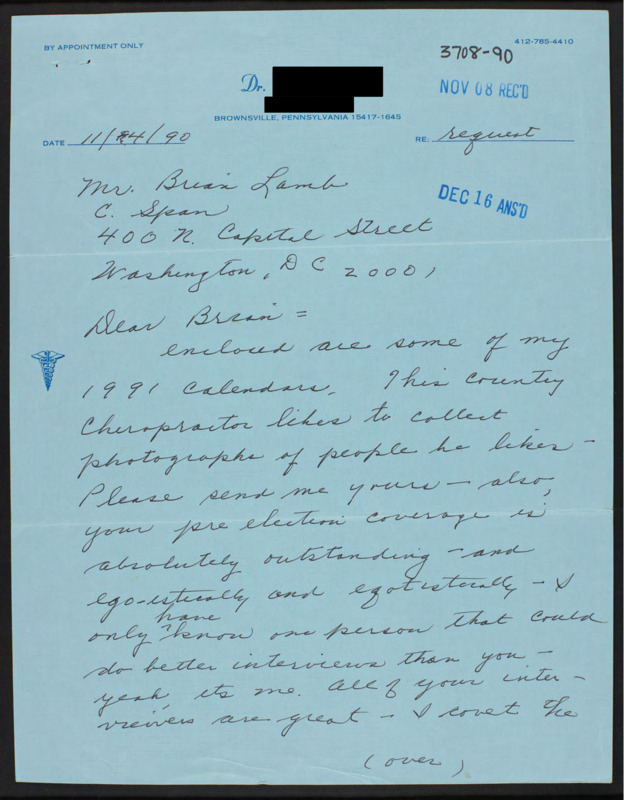 BY APPOINTMENT ONLY
412-785-4410
3708-90
Dr.
NOV 08 REC'D
BROWNSVILLE, PENNSYLVANIA 15417-1645
DATE 11/4/90
RE: request
DEC 16 ANS'D
Mr. Brian Lamb
C. Span
400 N. Capital Street
Washington, DC 20001
Dear Brian =
enclosed are some of my
1991 calendars. This country
Chiropractor likes to collect
photographs of people he likes -
Please send me yours - also,
your pre election coverage is
absolutely outstanding - and
ego-istically and egotistically - I
have
only know one person that could
do better interviews than you -
yeah, its me. All of your inter-
vreivers are great - I covet the
(over)